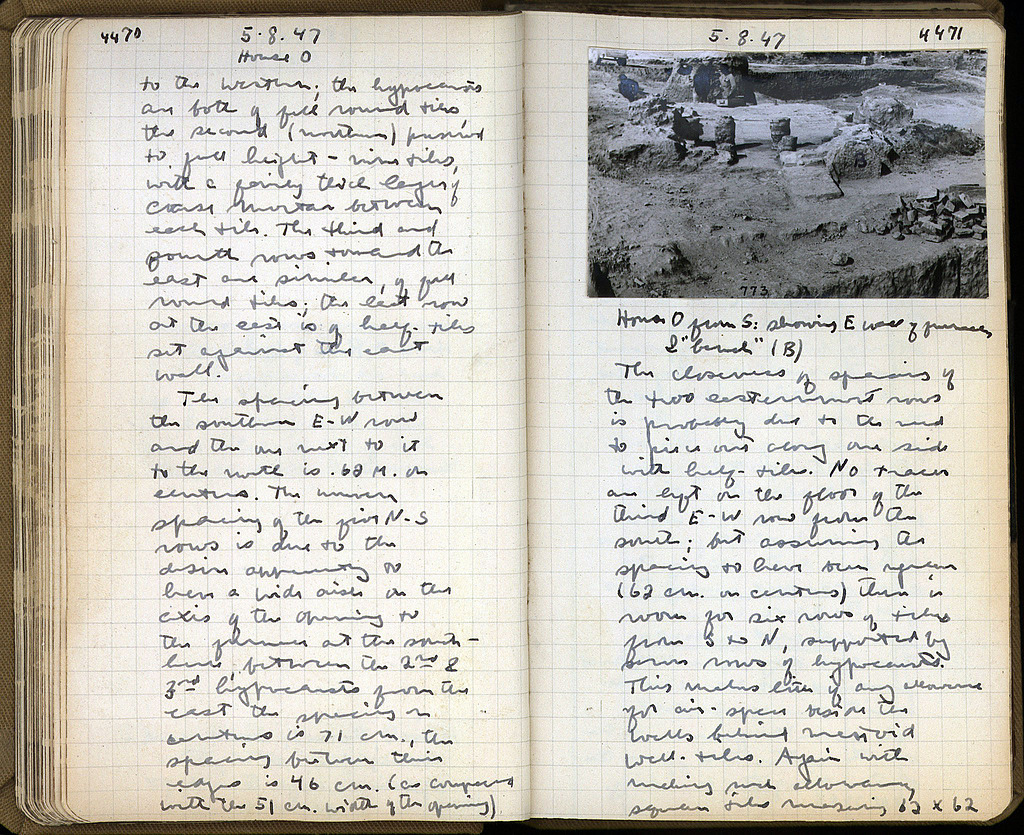 4470
5·8·47
House O
to the western; the hypocausts
are both of full round tiles
the second (northern) preserved
to full height – nine tiles,
with a fairly thick layer of
coarse mortar between
each tile. The third and
fourth rows toward the
east are similar, of full
round tiles; the last row
at the east is of half-tiles
set against the east
wall.
The spacing between
the southern E-W row
and the one next to it
to the north is .62 M. on
centers. The uneven
spacing of the five N-S
rows is due to the
desire apparently to
have a wide aisle on the
axis of the opening to
the furnace at the south –
here, between the 2nd &
3rd hypocausts from the
east the spacing on
centers is 71 cm., the
spacing between their
edges is 46 cm. (as compared
with the 51 cm. width of the opening)
5·8·47
4471
B
773
House O from S: showing E wall of furnace
& "bench" (B)
The closeness of spacing of
the two easternmost rows
is probably due to the need
to piece out along one side
with half-tiles. No traces
are left on the floor of the
third E-W row from the
south; but assuming the
spacing to have been regular
(62 cm. on centers) there is
room for six rows of tiles
from S to N, supported by
seven rows of hypocausts.
This makes little if any allowance
for air-space beside the
walls behind
wall-tiles. Again with
making such allowance
square tiles measuring 62 x 62